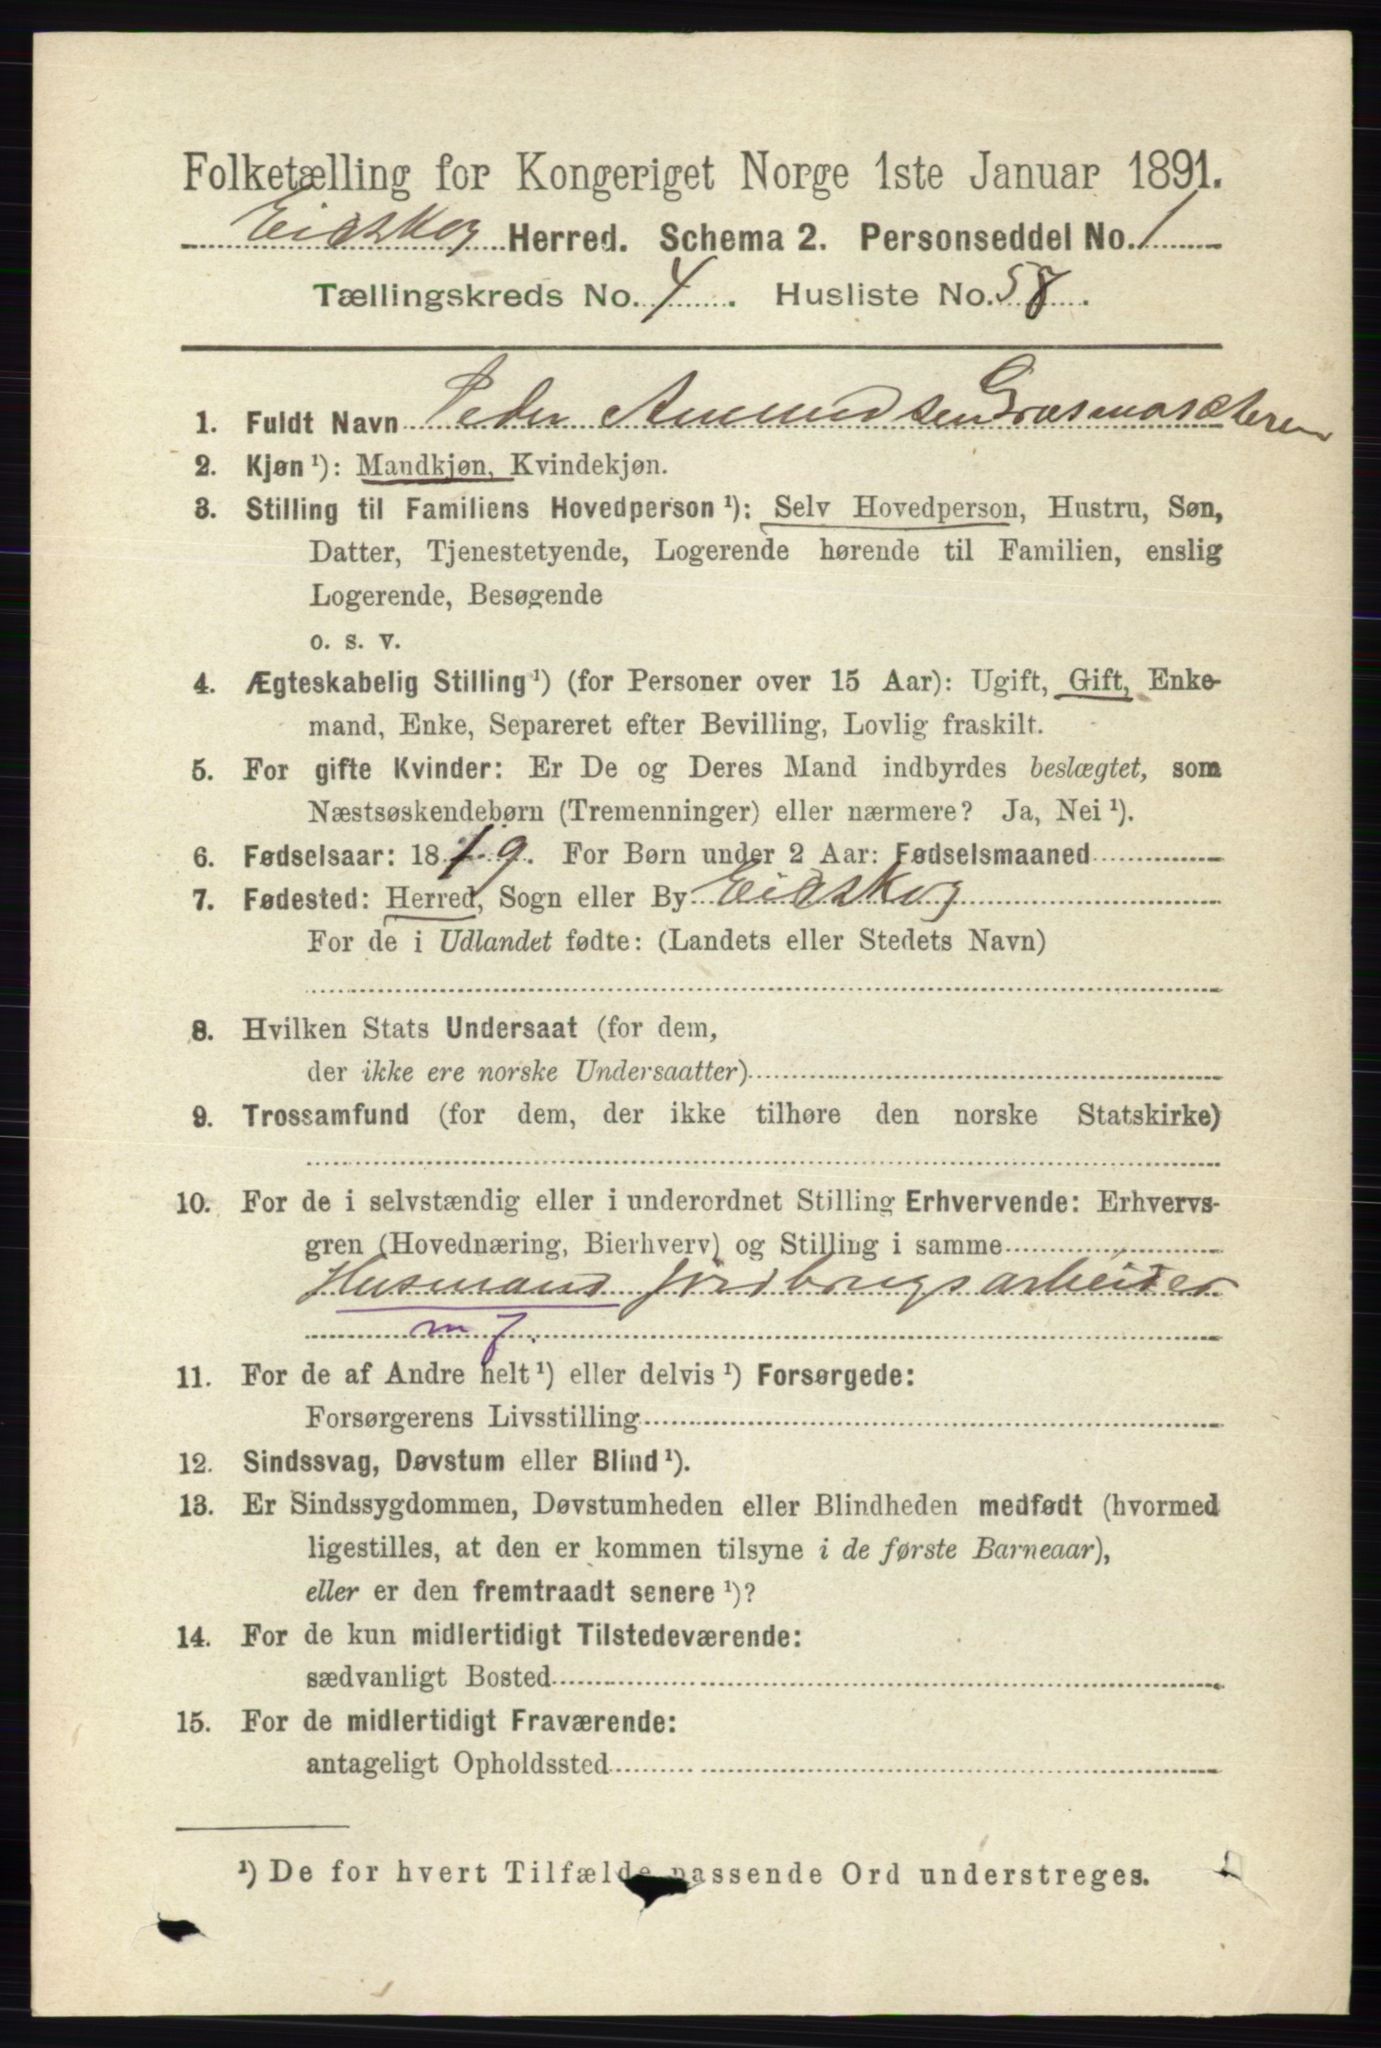 Folketælling for Kongeriget Norge 1ste Januar 1891.
Eidskog Herred. Schema 2. Personseddel No. 1
Tællingskreds No. 4. Husliste No. 58.
1. Fuldt Navn Peder Amundsen
2. Kjøn ¹): Mandkjøn, Kvindekjøn.
3. Stilling til Familiens Hovedperson ¹): Selv Hovedperson, Hustru, Søn,
Datter, Tjenestetyende, Logerende hørende til Familien, enslig
Logerende, Besøgende
o. s. v.
4. Ægteskabelig Stilling ¹) (for Personer over 15 Aar): Ugift, Gift, Enke-
mand, Enke, Separeret efter Bevilling, Lovlig fraskilt.
5. For gifte Kvinder: Er De og Deres Mand indbyrdes beslægtet, som
Næstsøskendebørn (Tremenninger) eller nærmere? Ja, Nei ¹).
6. Fødselsaar: 1819. For Børn under 2 Aar: Fødselsmaaned
7. Fødested: Herred, Sogn eller By Eidskog
For de i Udlandet fødte: (Landets eller Stedets Navn)
8. Hvilken Stats Undersaat (for dem,
der ikke ere norske Undersaatter)
9. Trossamfund (for dem, der ikke tilhøre den norske Statskirke)
10. For de i selvstændig eller i underordnet Stilling Erhvervende: Erhvervs-
gren (Hovednæring, Bierhverv) og Stilling i samme
Husmand jordbrugsarbeider
m j.
11. For de af Andre helt ¹) eller delvis ¹) Forsørgede:
Forsørgerens Livsstilling
12. Sindssvag, Døvstum eller Blind ¹).
13. Er Sindssygdommen, Døvstumheden eller Blindheden medfødt (hvormed
ligestilles, at den er kommen tilsyne i de første Barneaar),
eller er den fremtraadt senere ¹)?
14. For de kun midlertidigt Tilstedeværende:
sædvanligt Bosted
15. For de midlertidigt Fraværende:
antageligt Opholdssted
¹) De for hvert Tilfælde passende Ord understreges.